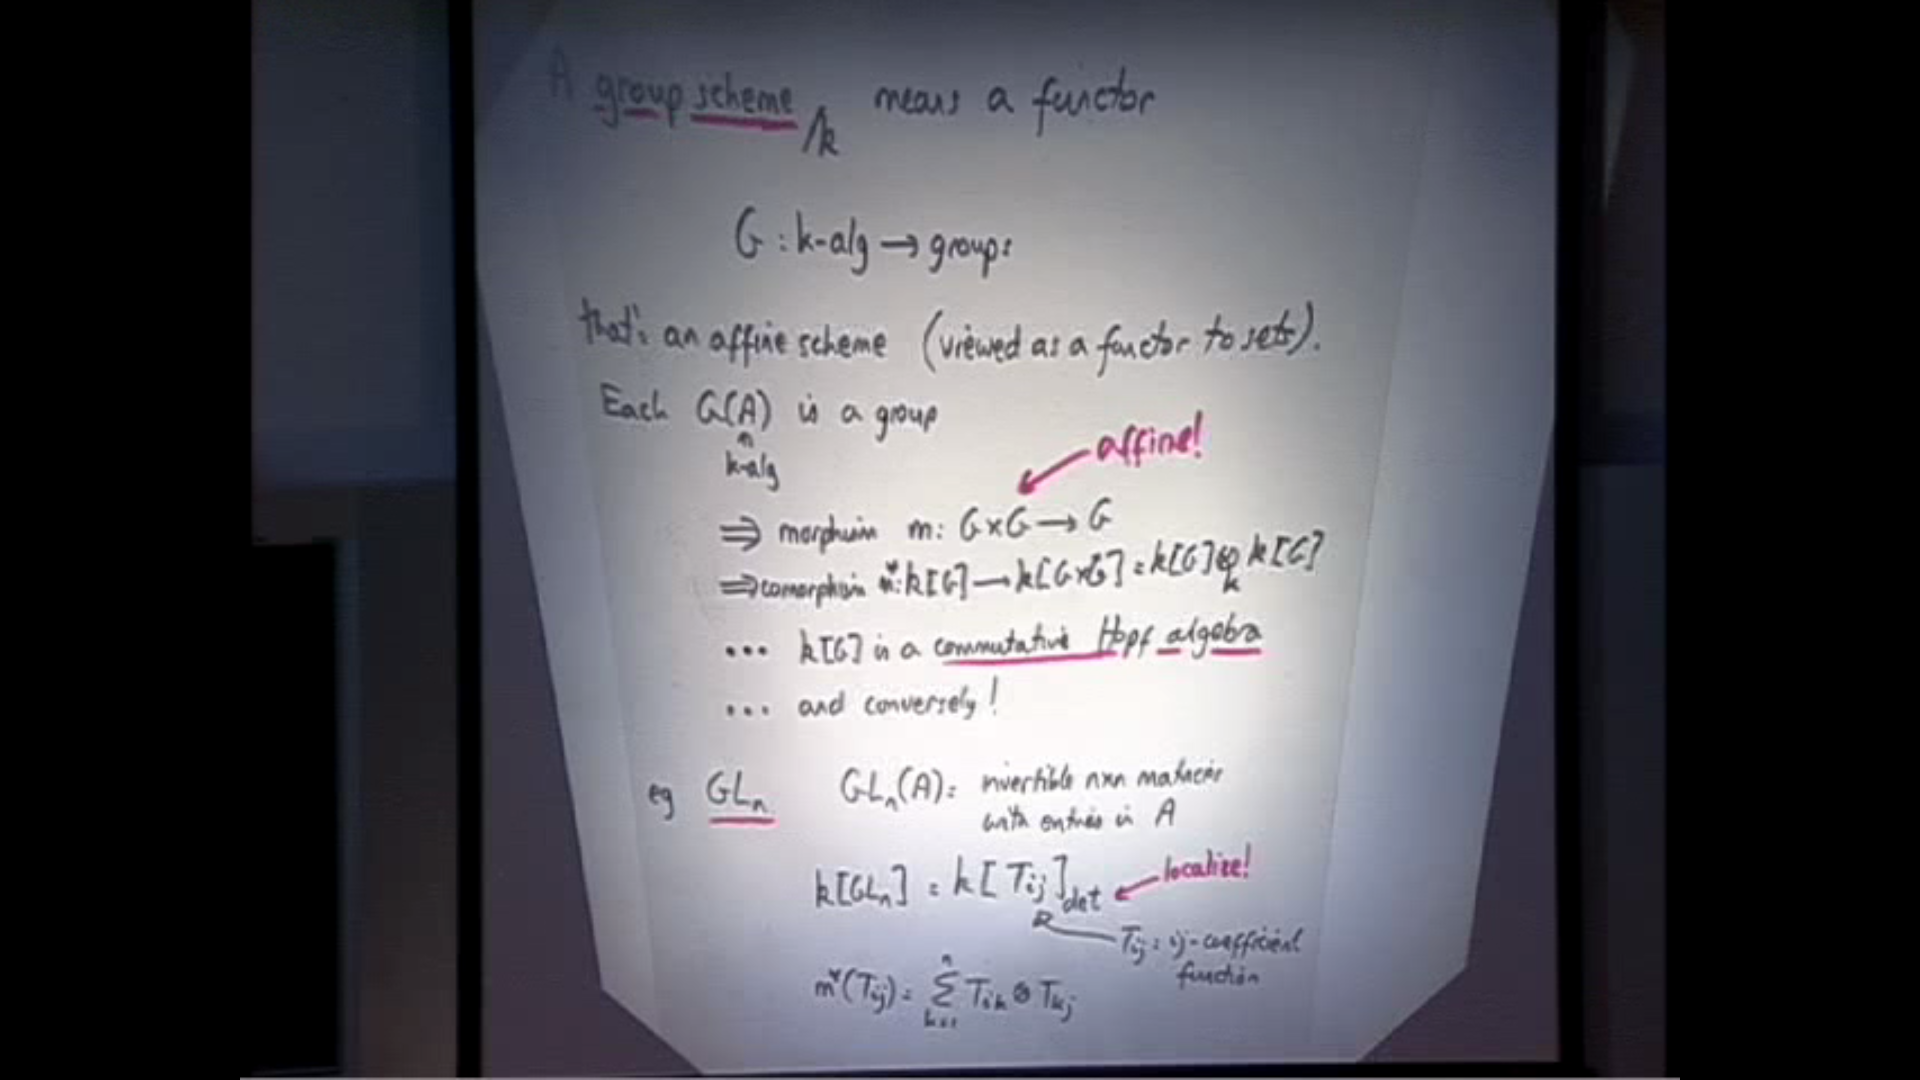 A group scheme /k means a functor
G : k-alg → groups
that's an affine scheme (viewed as a functor to sets).
Each G(A) is a group
k-alg
affine!
⇒ morphism m: G×G → G
⇒ comorphism m*: k[G] → k[G×G] = k[G] ⊗_k k[G]
... k[G] is a commutative Hopf algebra
... and conversely!
eg GL_n GL_n(A) = invertible n×n matrices
with entries in A
k[GL_n] = k[T_ij]_det localize!
T_ij = ij-coefficient
function
m*(T_ij) = Σ_{k=1}^{n} T_ik ⊗ T_kj